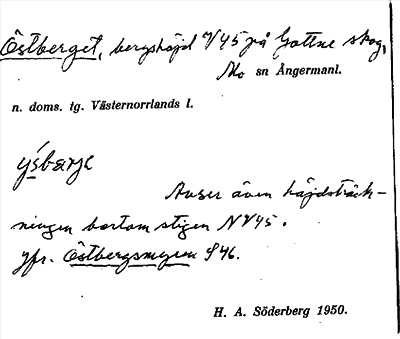 Östberget, bergshöjd V45 på Gottne skog,
Mo sn Ångermanl.
n. doms. tg. Västernorrlands l.
ýsbærje
Avser även höjdsträck-
ningen bortom stigen NV45.
Jfr. Östbergsmyren S46.
H. A. Söderberg 1950.